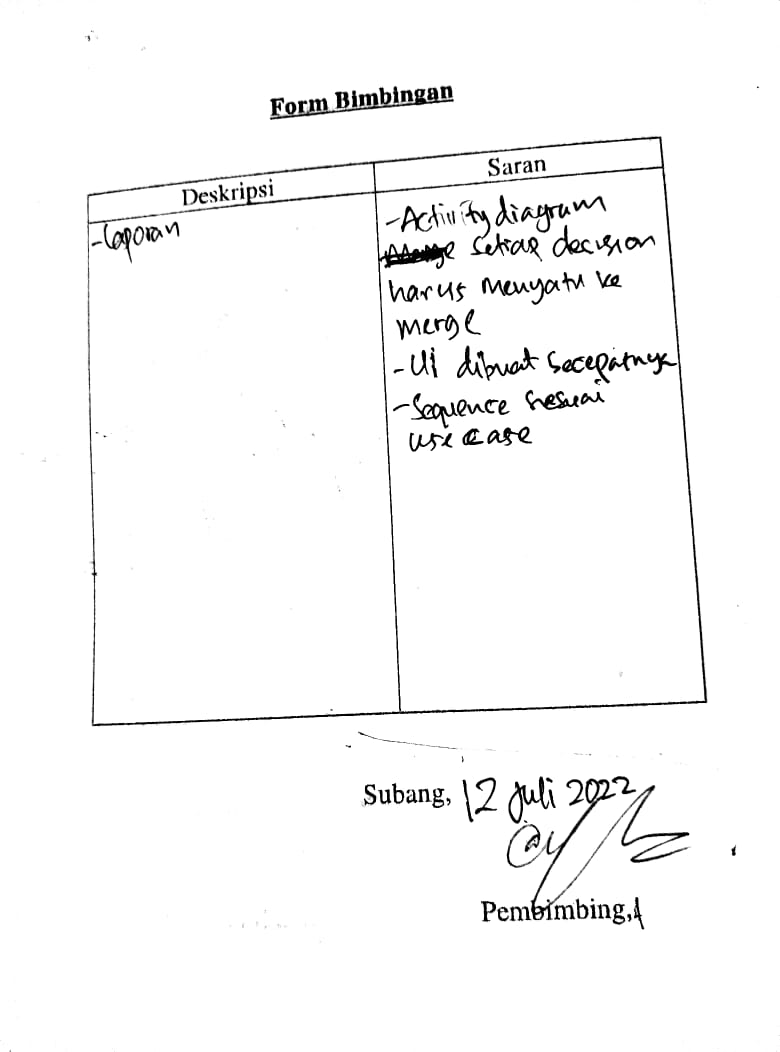 Form Bimbingan
Deskripsi
Saran
-Laporan
-Activity diagram
setiap decision
harus menyatu ke
merge
-UI dibuat secepatnya
-Sequence sesuai
use case
Subang, 12 Juli 2022
Pembimbing,1